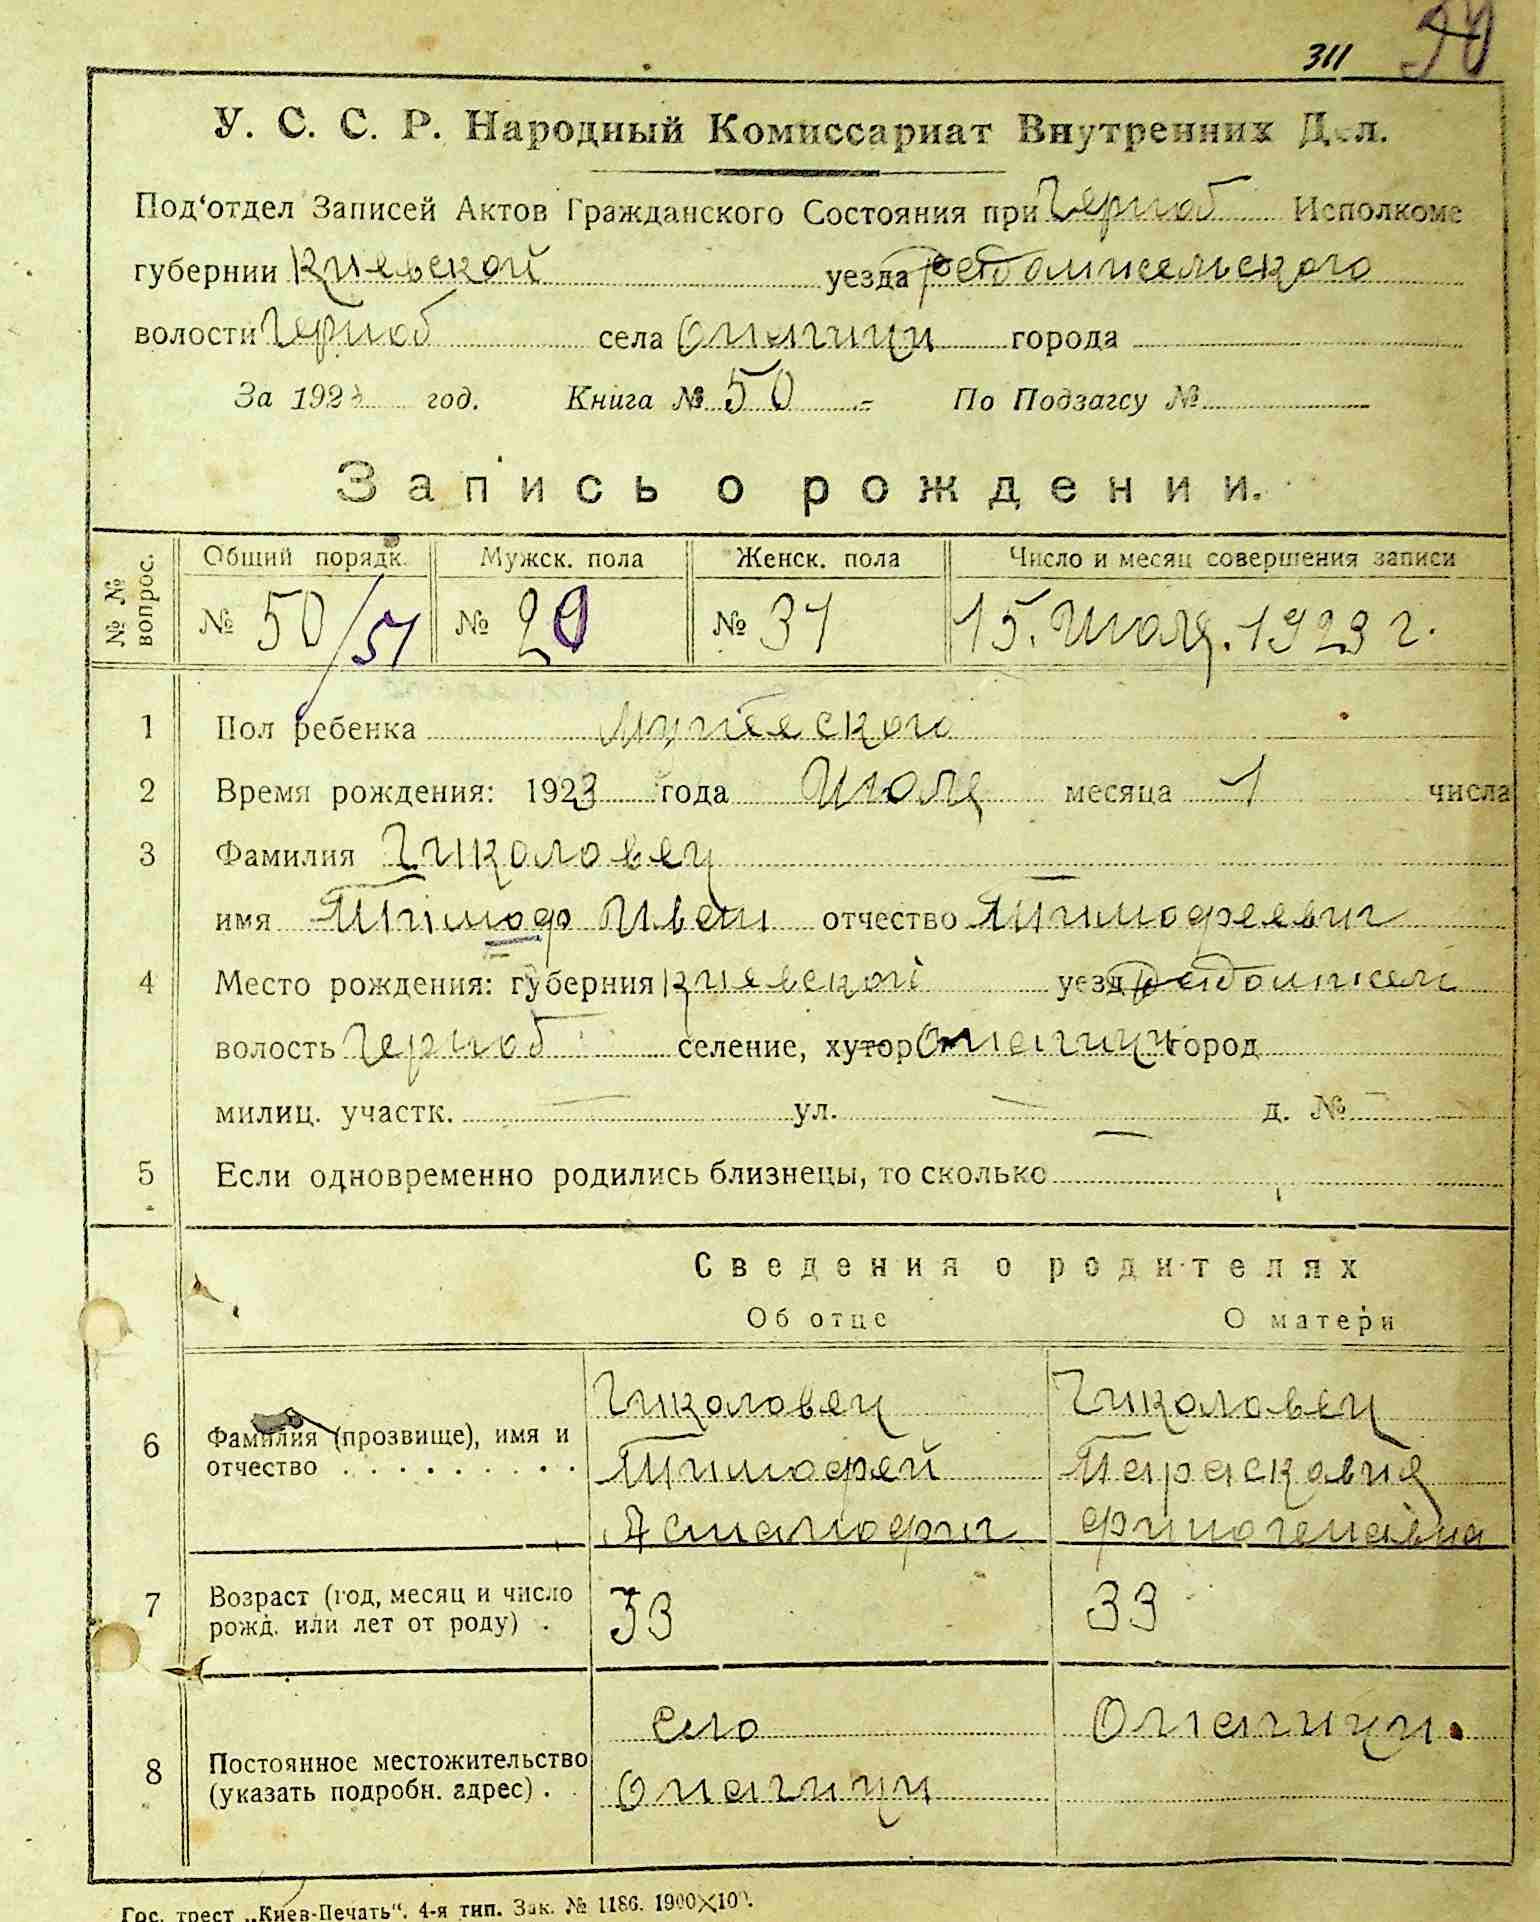 311 50
У. С. С. Р. Народный Комиссариат Внутренних Дел.
Под‘отдел Записей Актов Гражданского Состояния при Черноб Исполкоме
губернии Киевской уезда Родомисельского
волости Черноб села Опачичи города
За 1923 год. Книга № 50 По Подзагсу №
Запись о рождении.
№ № вопрос. Общий порядк. Мужск. пола Женск. пола Число и месяц совершения записи
№ 50/51 № 20 № 31 15. Июля. 1923 г.
1 Пол ребенка Мужеского
2 Время рождения: 1923 года Июля месяца 1 числа
3 Фамилия Чиколовец
имя Тимоф Иван отчество Тимофеевич
4 Место рождения: губерния Киевской уезд
волость Черноб селение, хутор Опачичи город
милиц. участк. — ул. — д. № —
5 Если одновременно родились близнецы, то сколько —
Сведения о родителях
Об отце О матери
6 Фамилия (прозвище), имя и отчество Чиколовец Чиколовец
Тимофей Параскавия
Финогенавна
7 Возраст (год, месяц и число рожд. или лет от роду) 33 33
8 Постоянное местожительство (указать подробн. адрес) село Опачичи.
Опачичи
Гос. трест „Киев-Печать“. 4-я тип. Зак. № 1186. 1900×100.